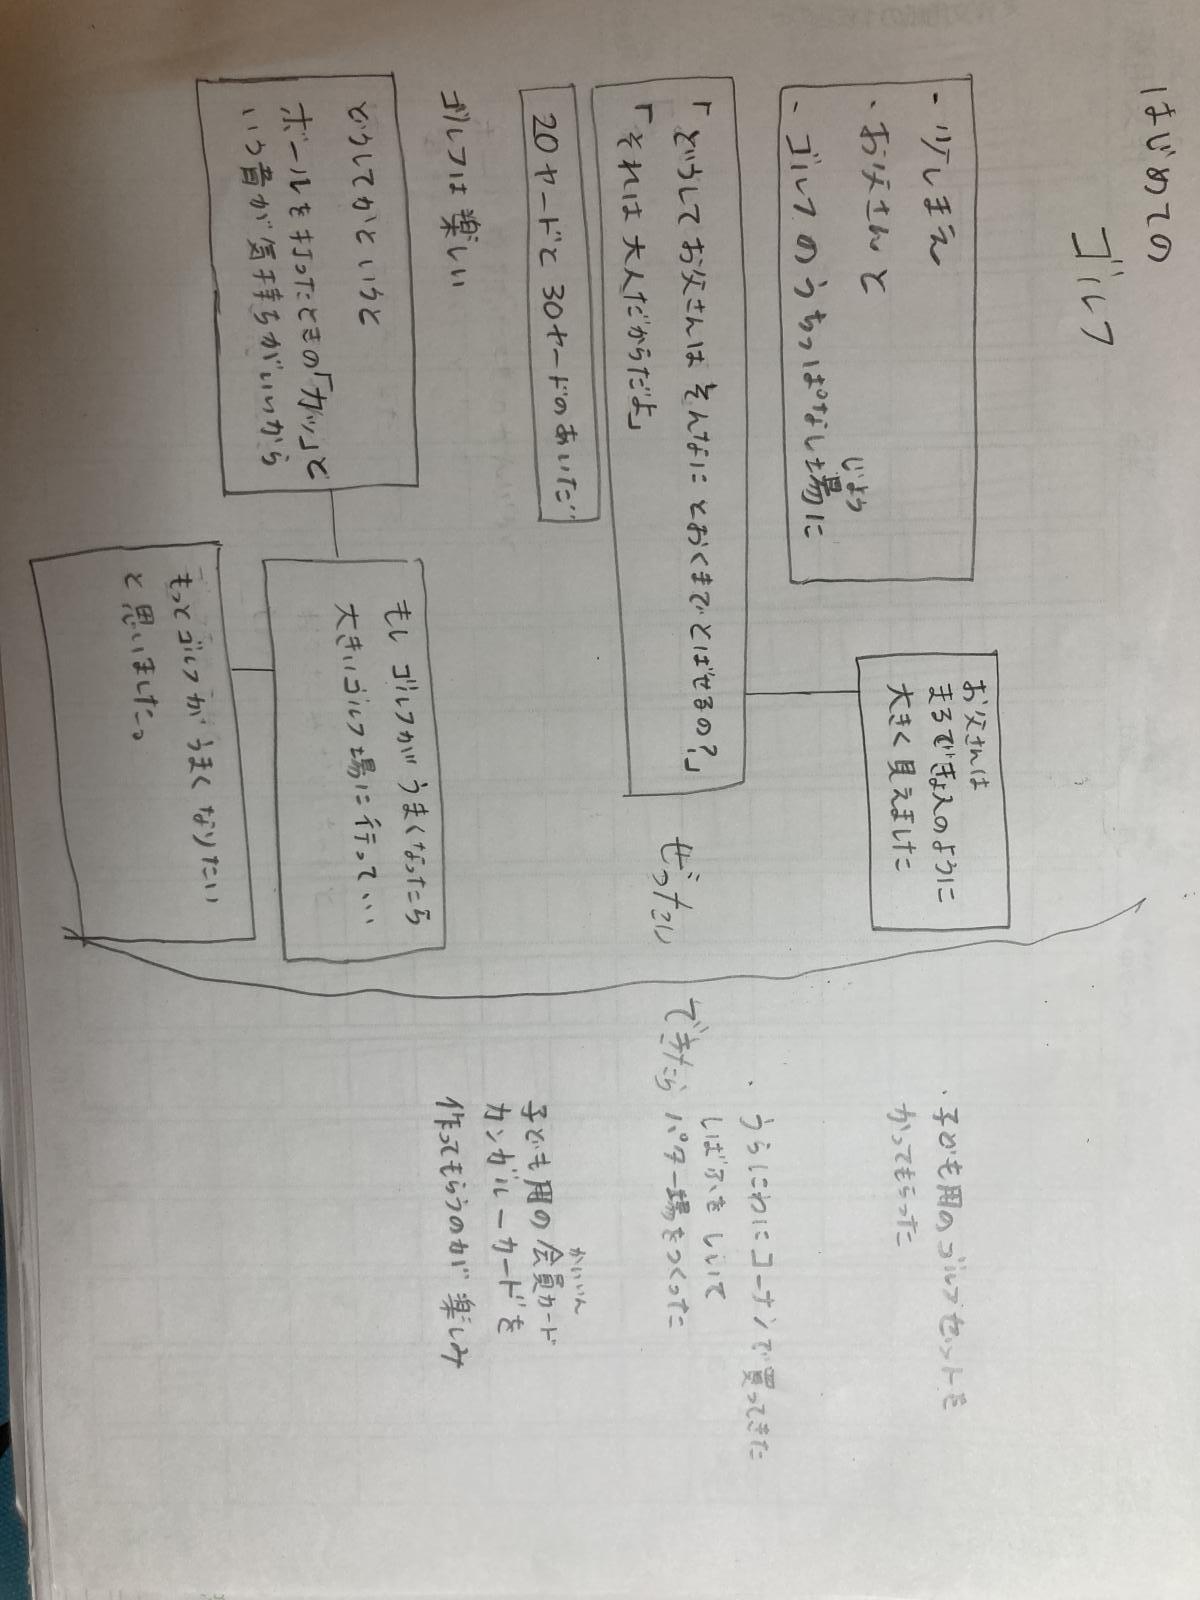 はじめての
ゴルフ
・少しまえ
・お父さんと
・ゴルフのうちっぱなし場に
じょう
お父さんは
まるできょ人のように
大きく見えました
「どうしてお父さんはそんなにとおくまでとばせるの?」
「それは大人だからだよ」
20ヤードと30ヤードのあいだ
ゴルフは楽しい
どうしてかというと
ボールを打ったときの「カッ」と
いう音が気持ちがいいから
もしゴルフがうまくなったら
大きいゴルフ場に行ってい
もっとゴルフがうまくなりたい
と思いました。
ぜったい
・子ども用のゴルフセットを
かってもらった
・うらにわにコーナンで買ってきた
しばふをしいて
できたらパター場をつくった
かいいん
子ども用の会員カード
カンガルーカードを
作ってもらうのが楽しみ